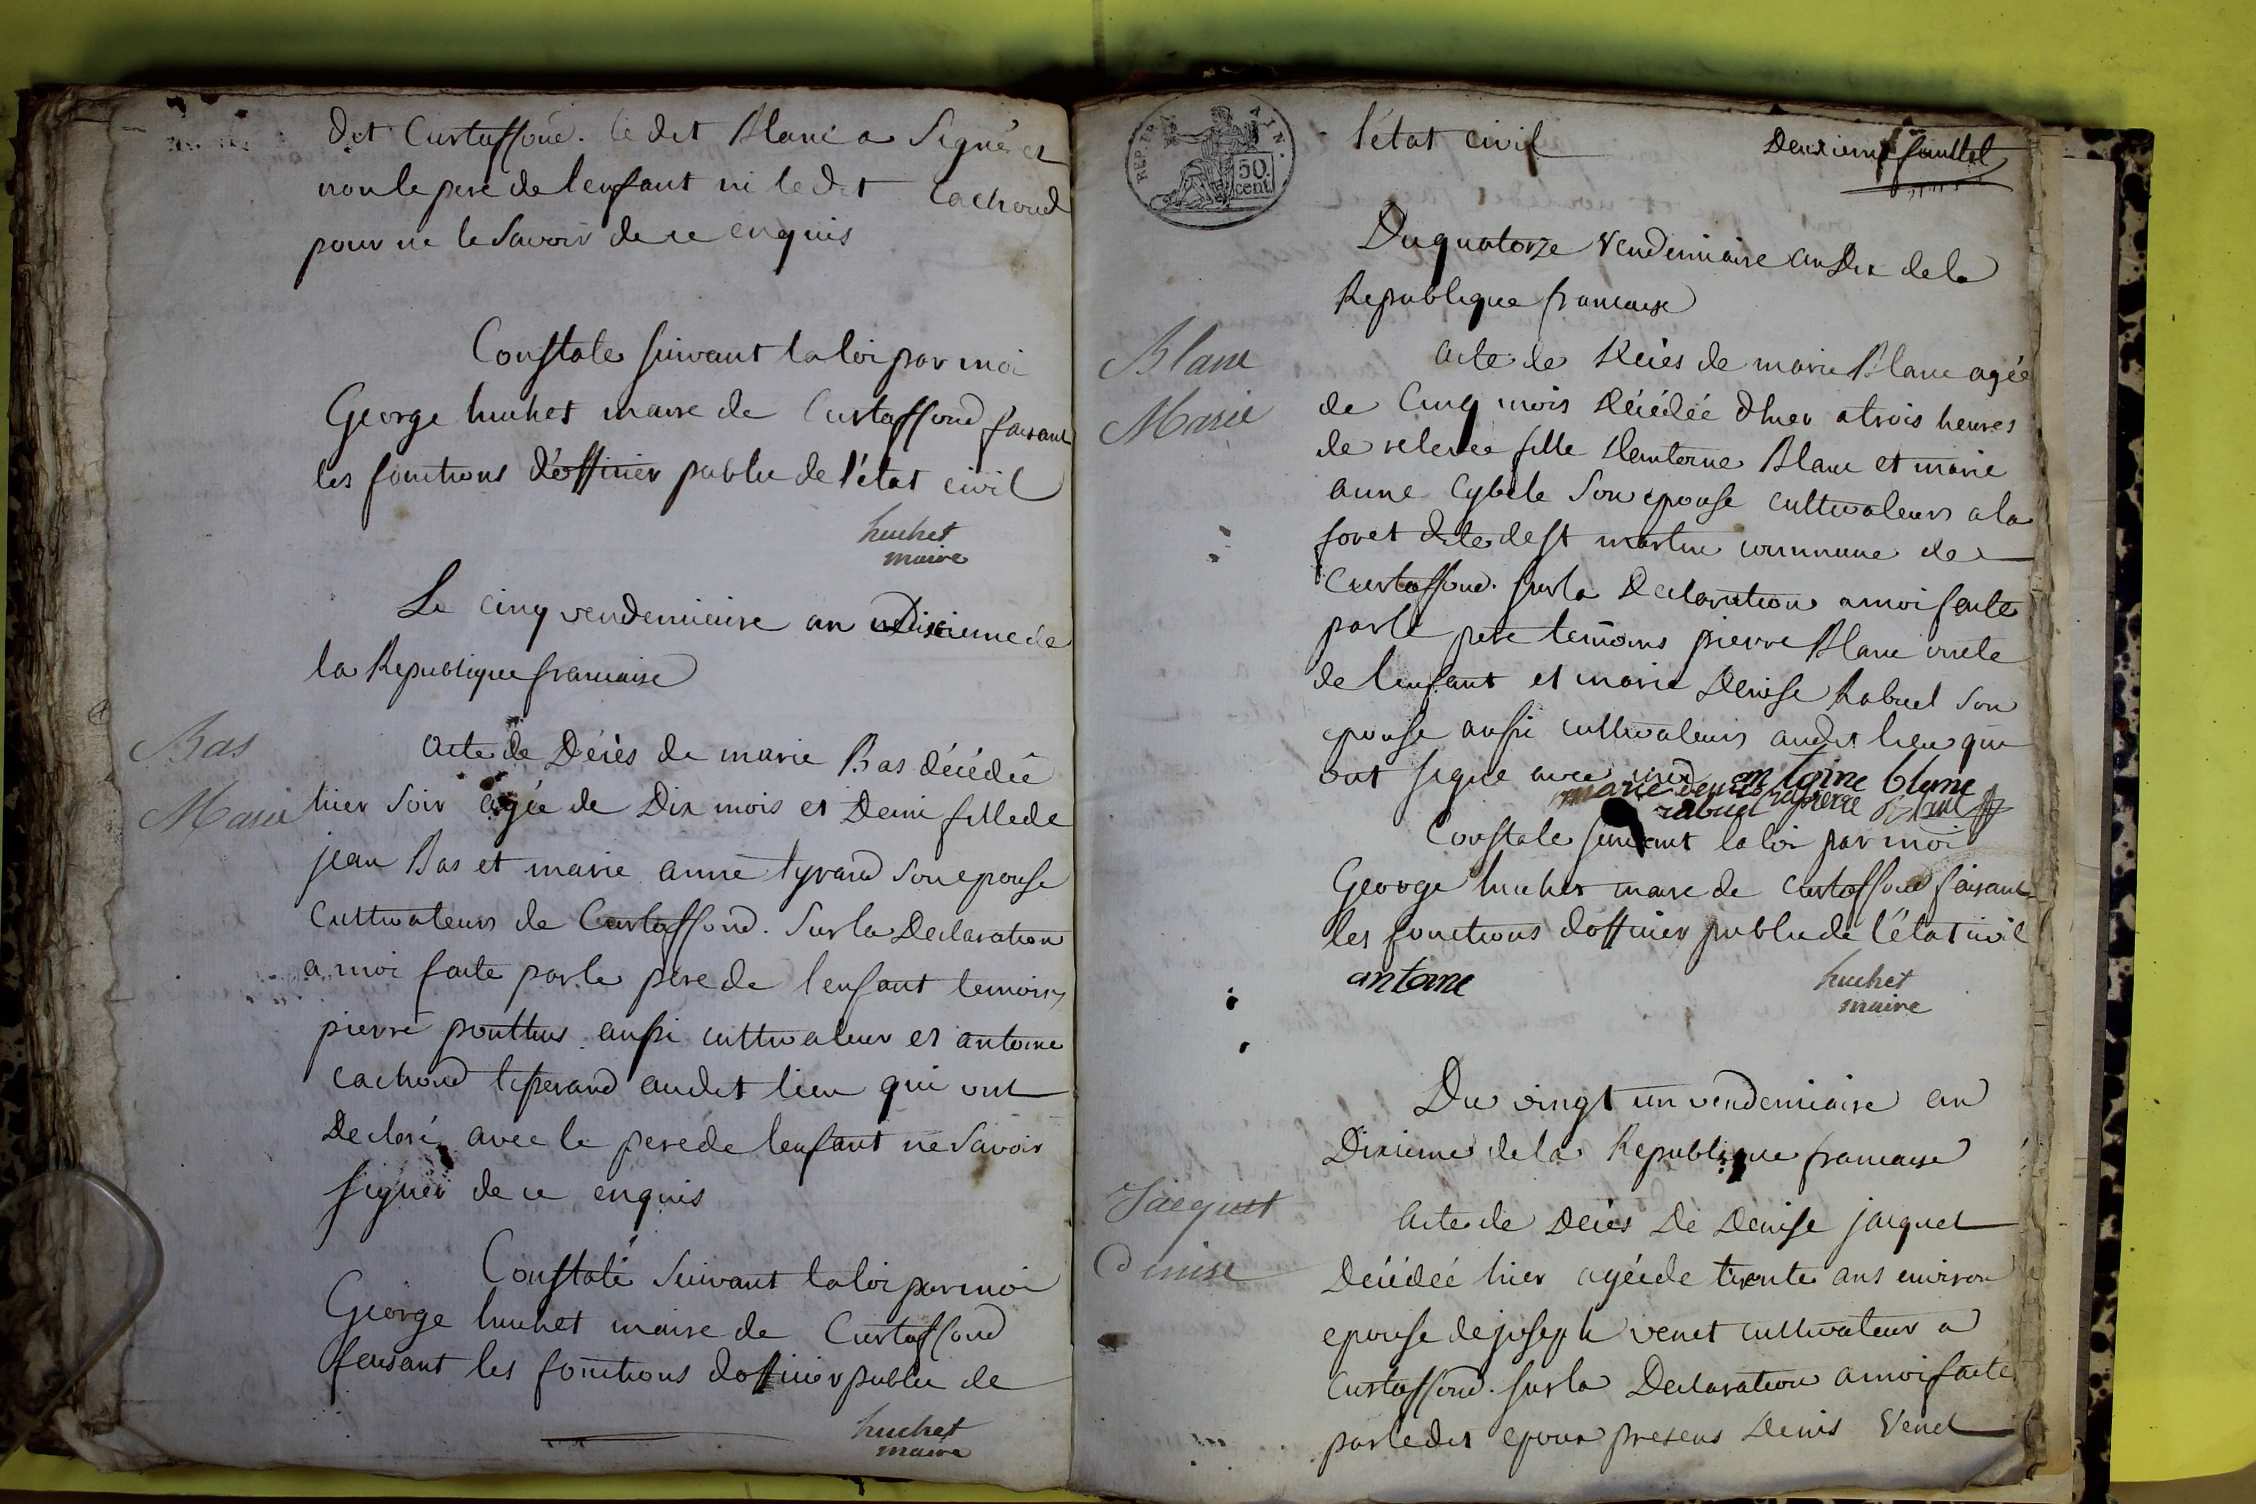 dit Curtaffoud. le dit Blanc a Signé et
non le pere de l'enfant ni le dit Cachoud
pour ne le Savoir de ce enquis
Constaté suivant la loi par moi
George huchet maire de Curtaffond faisant
les fonctions d'officier public de l'état civil
huchet
maire
Le cinq vendemiaire an Dixieme de
la Republique francaise
Bas
Marie
acte de Décès de marie Bas décédée
hier Soir agée de Dix mois et Demi fille de
jean Bas et marie anne tyrand Son epouse
Cultivateurs de Curtaffond. Sur la Declaration
a moi faite par le pere de l'enfant temoins
pierre ponthus aussi cultivateur et antoine
cachoud tisserand audit lieu qui ont
Declaré avec le pere de lenfant ne Savoir
signer de ce enquis
Constaté Suivant la loi par moi
George huchet maire de Curtaffond
feusant les fonctions dofficier public de
huchet
maire
REP. FRA
50
cent.
AIN.
l'état civil
Deuxieme feuillet
Du quatorze Vendemiaire an Dix de la
Republique francaise
Blanc
Marie
acte de Décès de marie Blanc agée
de Cinq mois Décédée d'hier a trois heures
de relevée fille d'antoine Blanc et marie
anne Cybele Son epouse cultivateurs a la
foret dite de St martin commune de
Curtaffond. Sur la Declaration a moi faite
par le pere temoins pierre Blanc oncle
de l'enfant et marie Denise Rabuel Son
epouse aussi cultivateurs audit lieu qui
ont signé avec moi antoine blanc
marie denise rabuel pierre Blanc
Constaté suivant la loi par moi
George huchet maire de Curtaffond faisant
les fonctions dofficier public de l'état civil
antoine
huchet
maire
Du vingt un vendemiaire an
Dixieme de la Republique francaise
Jacquet
Denise
Acte de Décès De Denise jacquet
Décédée hier agée de trente ans environ
epouse de joseph venet cultivateur a
Curtaffond. Sur la Declaration a moi faite
par ledit epoux presens Denis Venet